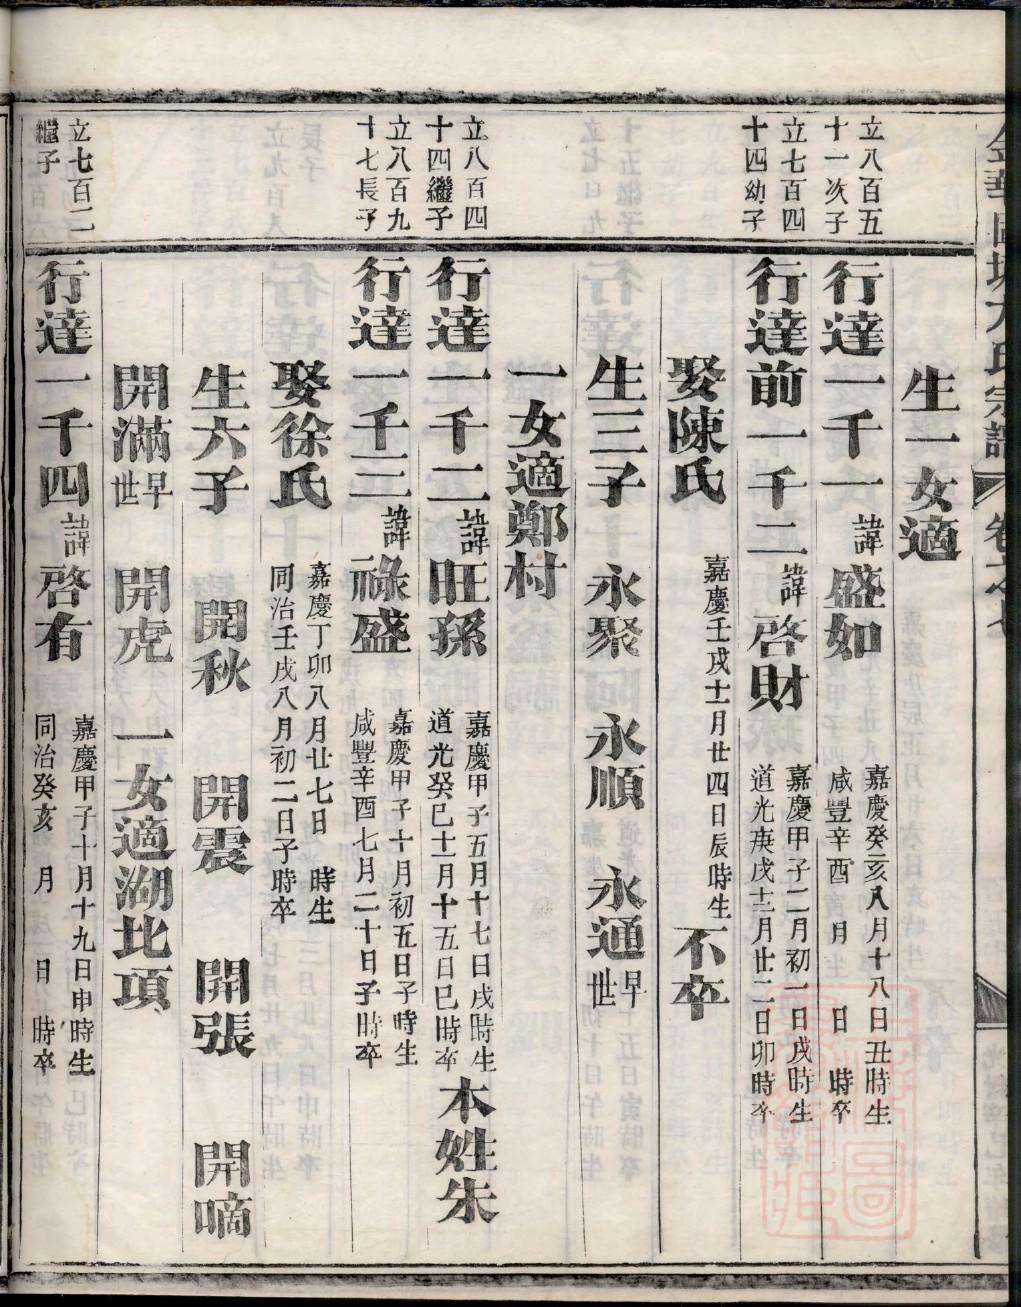 生一女適
立八百五
十一次子
行達一千一 諱 盛如
嘉慶癸亥八月十八日丑時生
咸豐辛酉 月 日 時卒
立七百四
十四幼子
行達前一千二 諱 啓財
嘉慶甲子二月初一日戌時生
道光庚戌十二月廿二日卯時卒
娶陳氏
嘉慶壬戌十一月廿四日辰時生
不卒
生三子 永聚 永順 永通 早世
一女適鄭村
立八百四
十四繼子
行達一千二 諱 旺孫
嘉慶甲子五月十七日戌時生
道光癸巳十一月十五日巳時卒
本姓朱
立八百九
十七長子
行達一千三 諱 祿盛
嘉慶甲子十月初五日子時生
咸豐辛酉七月二十日子時卒
娶徐氏
嘉慶丁卯八月廿七日 時生
同治壬戌八月初二日子時卒
生六子 開秋 開震 開張 開嘀
開滿 早世 開虎 一女適湖北項
立七百二
繼子
行達一千四 諱 啓有
嘉慶甲子十月十九日申時生
同治癸亥 月 日 時卒